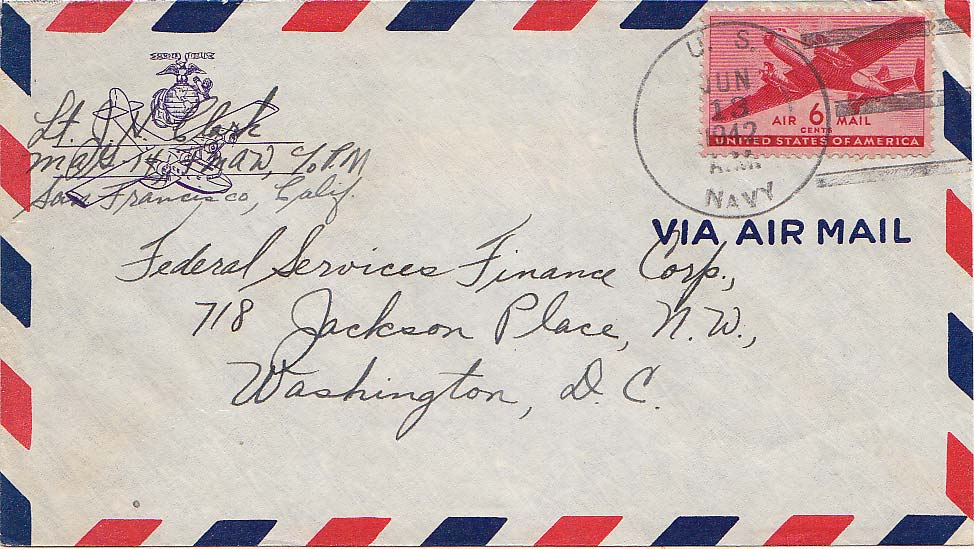 Lt. J. V. Clark
MAG 14, 1 MAW, c/o P.M.
San Francisco, Calif.
U. S.
JUN
13
1942
A.M.
NAVY
AIR 6 MAIL
CENTS
UNITED STATES OF AMERICA
VIA AIR MAIL
Federal Services Finance Corp.,
718 Jackson Place, N.W.,
Washington, D.C.